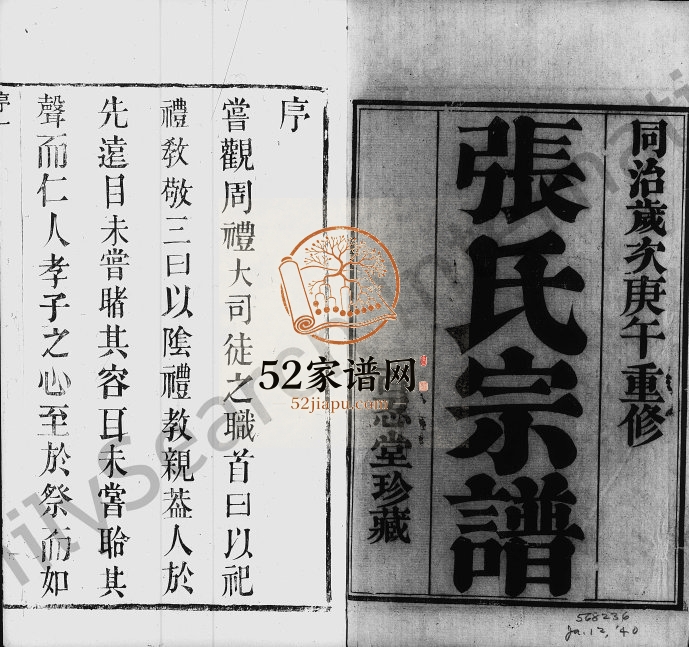 同治歲次庚午重修
張氏宗譜
堂珍藏
568236
Ja. 12, '40
序
嘗觀周禮大司徒之職首曰以祀
禮教敬三曰以陰禮教親葢人於
先遠目未嘗睹其容耳未嘗聆其
聲而仁人孝子之心至於祭而如
序一
52家谱网
52jiapu.com